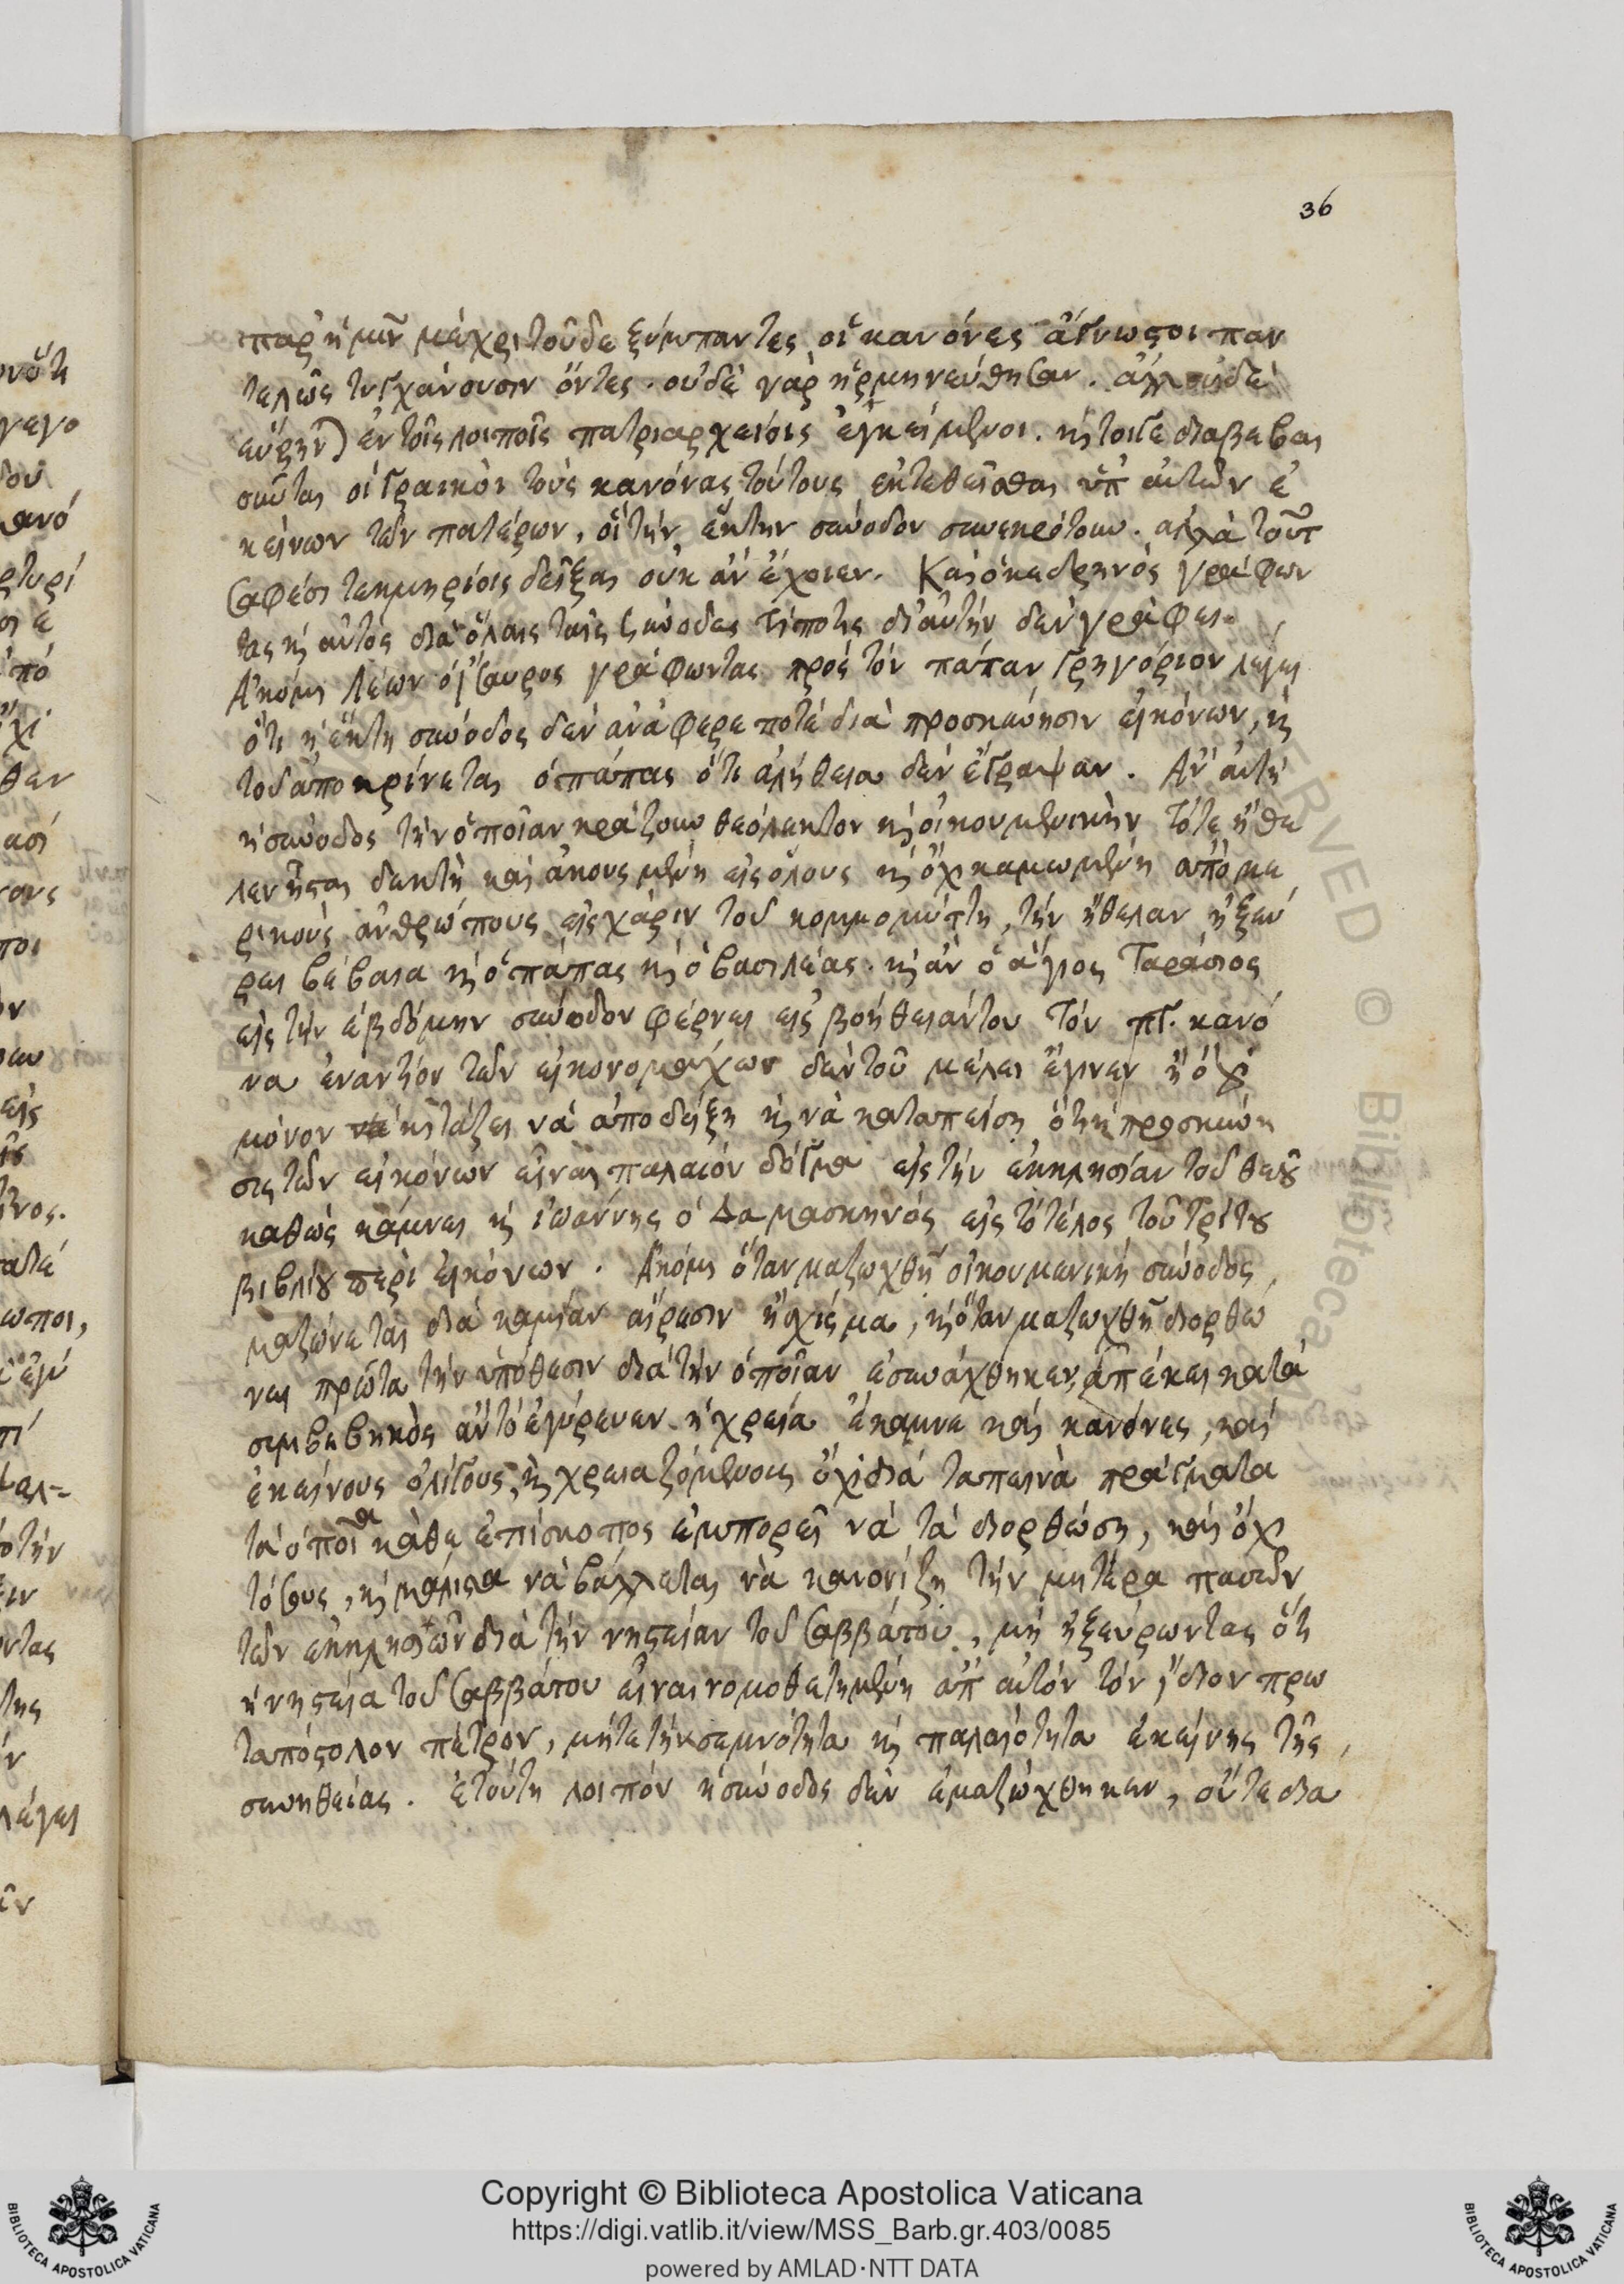 36
παρ' ἡμῖν μέχρι τοῦδε ξύμπαντες οἱ κανόνες ἄγνωστοι παν
τελῶς τυγχάνουσιν ὄντες. οὐδὲ γὰρ ἡρμηνεύθησαν. ἀλλ' οὐδὲ
εὕρην) ἐν τοῖς λοιποῖς πατριαρχείοις ἐγκείμενοι. καί τοιγε διαβεβαι
οῦται οἱ γραικοὶ τοὺς κανόνας τούτους ἐκτεθεῖσθαι ὑπ' αὐτῶν ἐ
κείνων τῶν πατέρων, οἳ τὴν ἕκτην σύνοδον συνεκρότουν. ἀλλὰ τοῦτ
σαφέσι τεκμηρίοις δεῖξαι οὐκ ἂν ἔχοιεν. Καὶ ὁ κεδρηνὸς γράφων
τας καὶ αὐτὸς διὰ ὅλαις ταῖς συνόδες τίποτις δι' αὐτὴν δὲν γράφει.
Ἀκόμι Λέων ὁ ἴσαυρος γράφωντας πρὸς τὸν πάπαν Γρηγόριον λέγει
ὅτι ἡ ἕκτη σύνοδος δὲν ἀνάφερε ποτὲ διὰ προσκύνησιν εἰκόνων, καὶ
τοῦ ἀποκρίνεται ὁ πάπας ὅτι ἀλήθεια δὲν ἔγραψαν. Ἂν αὐτὴ
ἡ σύνοδος τὴν ὁποίαν κράζουν θεόλεκτον καὶ οἰκουμενικὴν τότε ἤθε
λεν ἦσται δεκτὴ καὶ ἀκουσμένη εἰς ὅλους καὶ ὄχι καμωμένη ἀπὸ με
ρικοὺς ἀνθρώπους εἰς χάριν τοῦ κομμομύττη, τὴν ἤθελαν ἠξεύ
ρει βέβαια καὶ ὁ πάπας καὶ ὁ βασιλέας. καὶ ἂν ὁ ἅγιος Ταράσιος
εἰς τὴν ἑβδόμην σύνοδον φέρνει εἰς βοήθειάν του τὸν πγ. κανό
να ἐναντίον τῶν εἰκονομάχων δέν τοῦ μέλει ἔγινεν ἢ ὄχι
μόνον κυτάζει νὰ ἀποδείξῃ καὶ νὰ καταπείσῃ ὅτι ἡ προσκύνη
σις τῶν εἰκόνων εἶναι παλαιὸν δόγμα εἰς τὴν ἐκκλησίαν τοῦ θεοῦ
καθὼς κάμνει καὶ ἰωάννης ὁ Δαμασκηνὸς εἰς τὸ τέλος τοῦ τρίτου
βιβλίου περὶ εἰκόνων. Ἀκόμι ὅταν μαζωχθῇ οἰκουμενικὴ σύνοδος,
μαζώνεται διὰ καμίαν αἵρεσιν ἢ σχίσμα, καὶ ὅταν μαζωχθῇ διορθώ
νει πρῶτα τὴν ὑπόθεσιν διὰ τὴν ὁποίαν ἐσυνάχθηκεν, ἀπέκει κατὰ
συμβεβηκὸς ἂν τὸ ἐγύρευεν ἡ χρεία ἔκαμνε καὶ κανόνες, καὶ
ἐκείνους ὀλίγους, καὶ χρειαζόμενους ὄχι διὰ ταπεινὰ πράγματα
τὰ ὁποῖα κάθε ἐπίσκοπος ἐμπορεῖ νὰ τὰ διορθώσῃ, καὶ ὄχι
τόσους, καὶ μάλιστα νὰ βάλλεται νὰ κανονίζῃ τὴν μητέρα πασῶν
τῶν ἐκκλησιῶν διὰ τὴν νηστείαν τοῦ σαββάτου, μὴ ἠξεύρωντας ὅτι
ἡ νηστεία τοῦ σαββάτου εἶναι νομοθετημένη ἀπ' αὐτὸν τὸν ἴδιον πρω
ταπόστολον πέτρον, μήτε τὴν σεμνότητα καὶ παλαιότητα ἐκείνης τῆς
συνηθείας. ἐτούτη λοιπὸν ἡ σύνοδος δὲν ἐμαζώχθηκεν, οὔτε δια
Copyright © Biblioteca Apostolica Vaticana
https://digi.vatlib.it/view/MSS_Barb.gr.403/0085
powered by AMLAD·NTT DATA